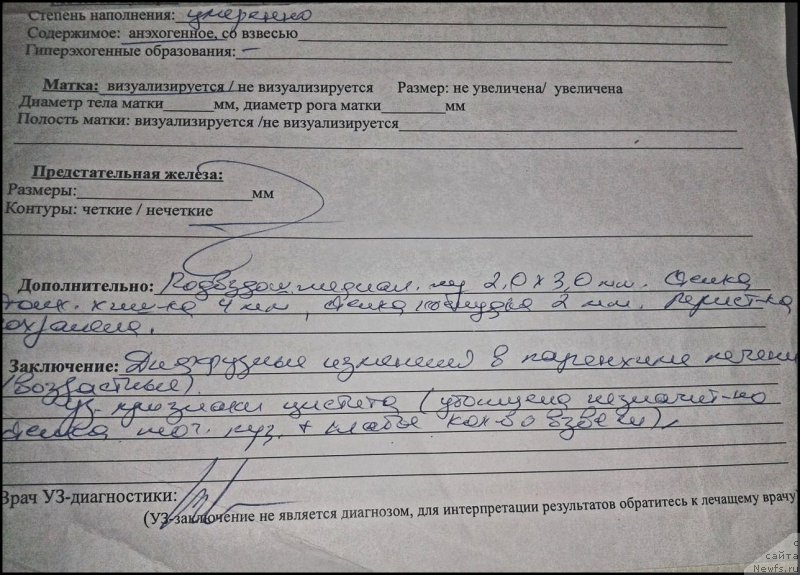 Степень наполнения: умеренно
Содержимое: анэхогенное, со взвесью
Гиперэхогенные образования: —
Матка: визуализируется / не визуализируется Размер: не увеличена/ увеличена
Диаметр тела матки мм, диаметр рога матки мм
Полость матки: визуализируется /не визуализируется
Предстательная железа:
Размеры: мм
Контуры: четкие / нечеткие
Дополнительно: Подвздом. медиал. лу 2,0 х 3,0 мм. Стенка
тонк. киш-ка 4 мм, стенка желудка 2 мм. Перист-ка
сохранена.
Заключение: Диффузные изменения в паренхиме печени
(возрастные).
Уз-признаки цистита (утолщена незначит-но
стенка моч. пуз. + кол-во взвеси),
Врач УЗ-диагностики:
(УЗ-заключение не является диагнозом, для интерпретации результатов обратитесь к лечащему врачу)
с
сайта
Newfs.ru